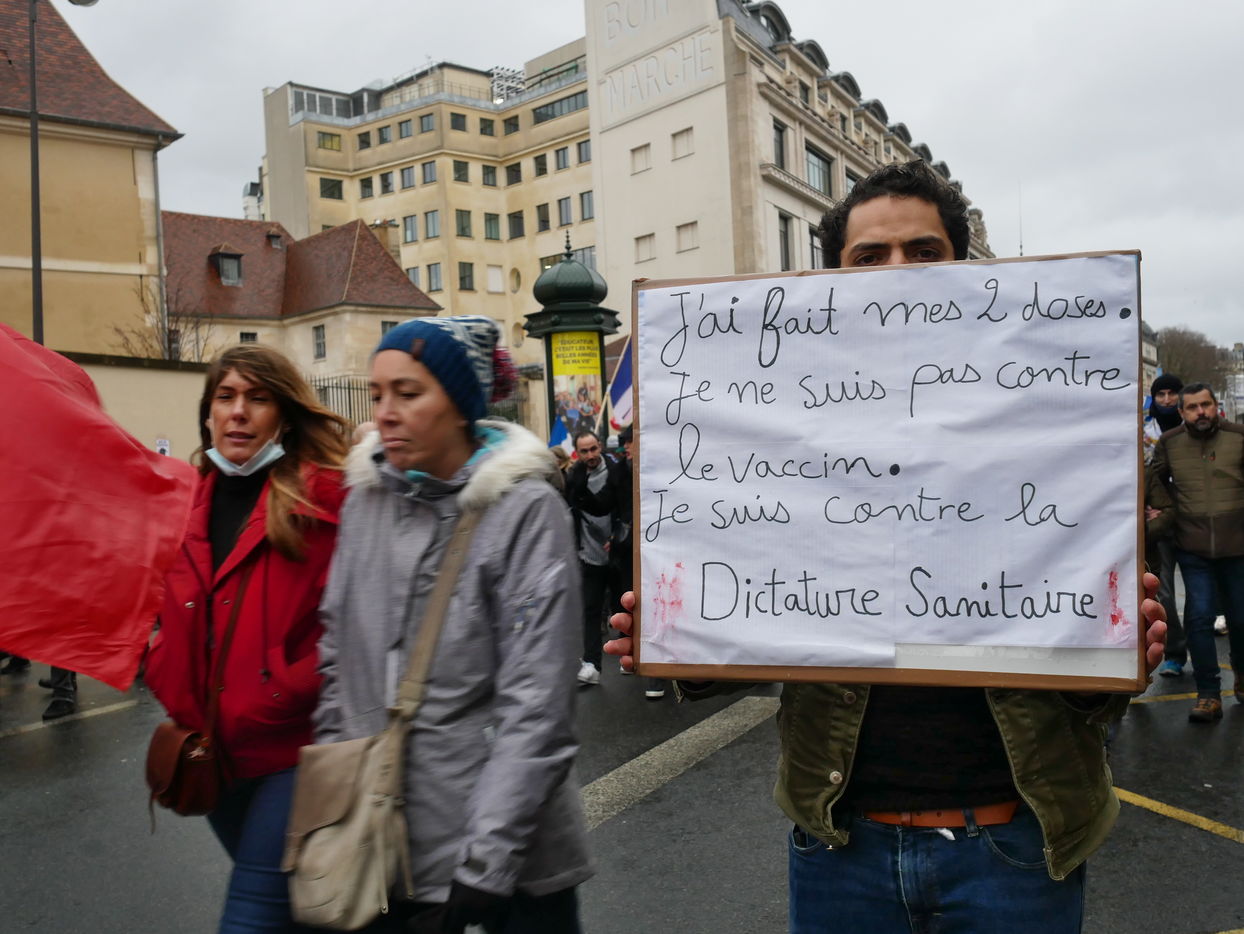 BON
MARCHE
EDUCATEUR
C'ETAIT LES PLUS
BELLES ANNÉES
DE MA VIE"
J'ai fait mes 2 doses.
Je ne suis pas contre
le vaccin.
Je suis contre la
Dictature Sanitaire